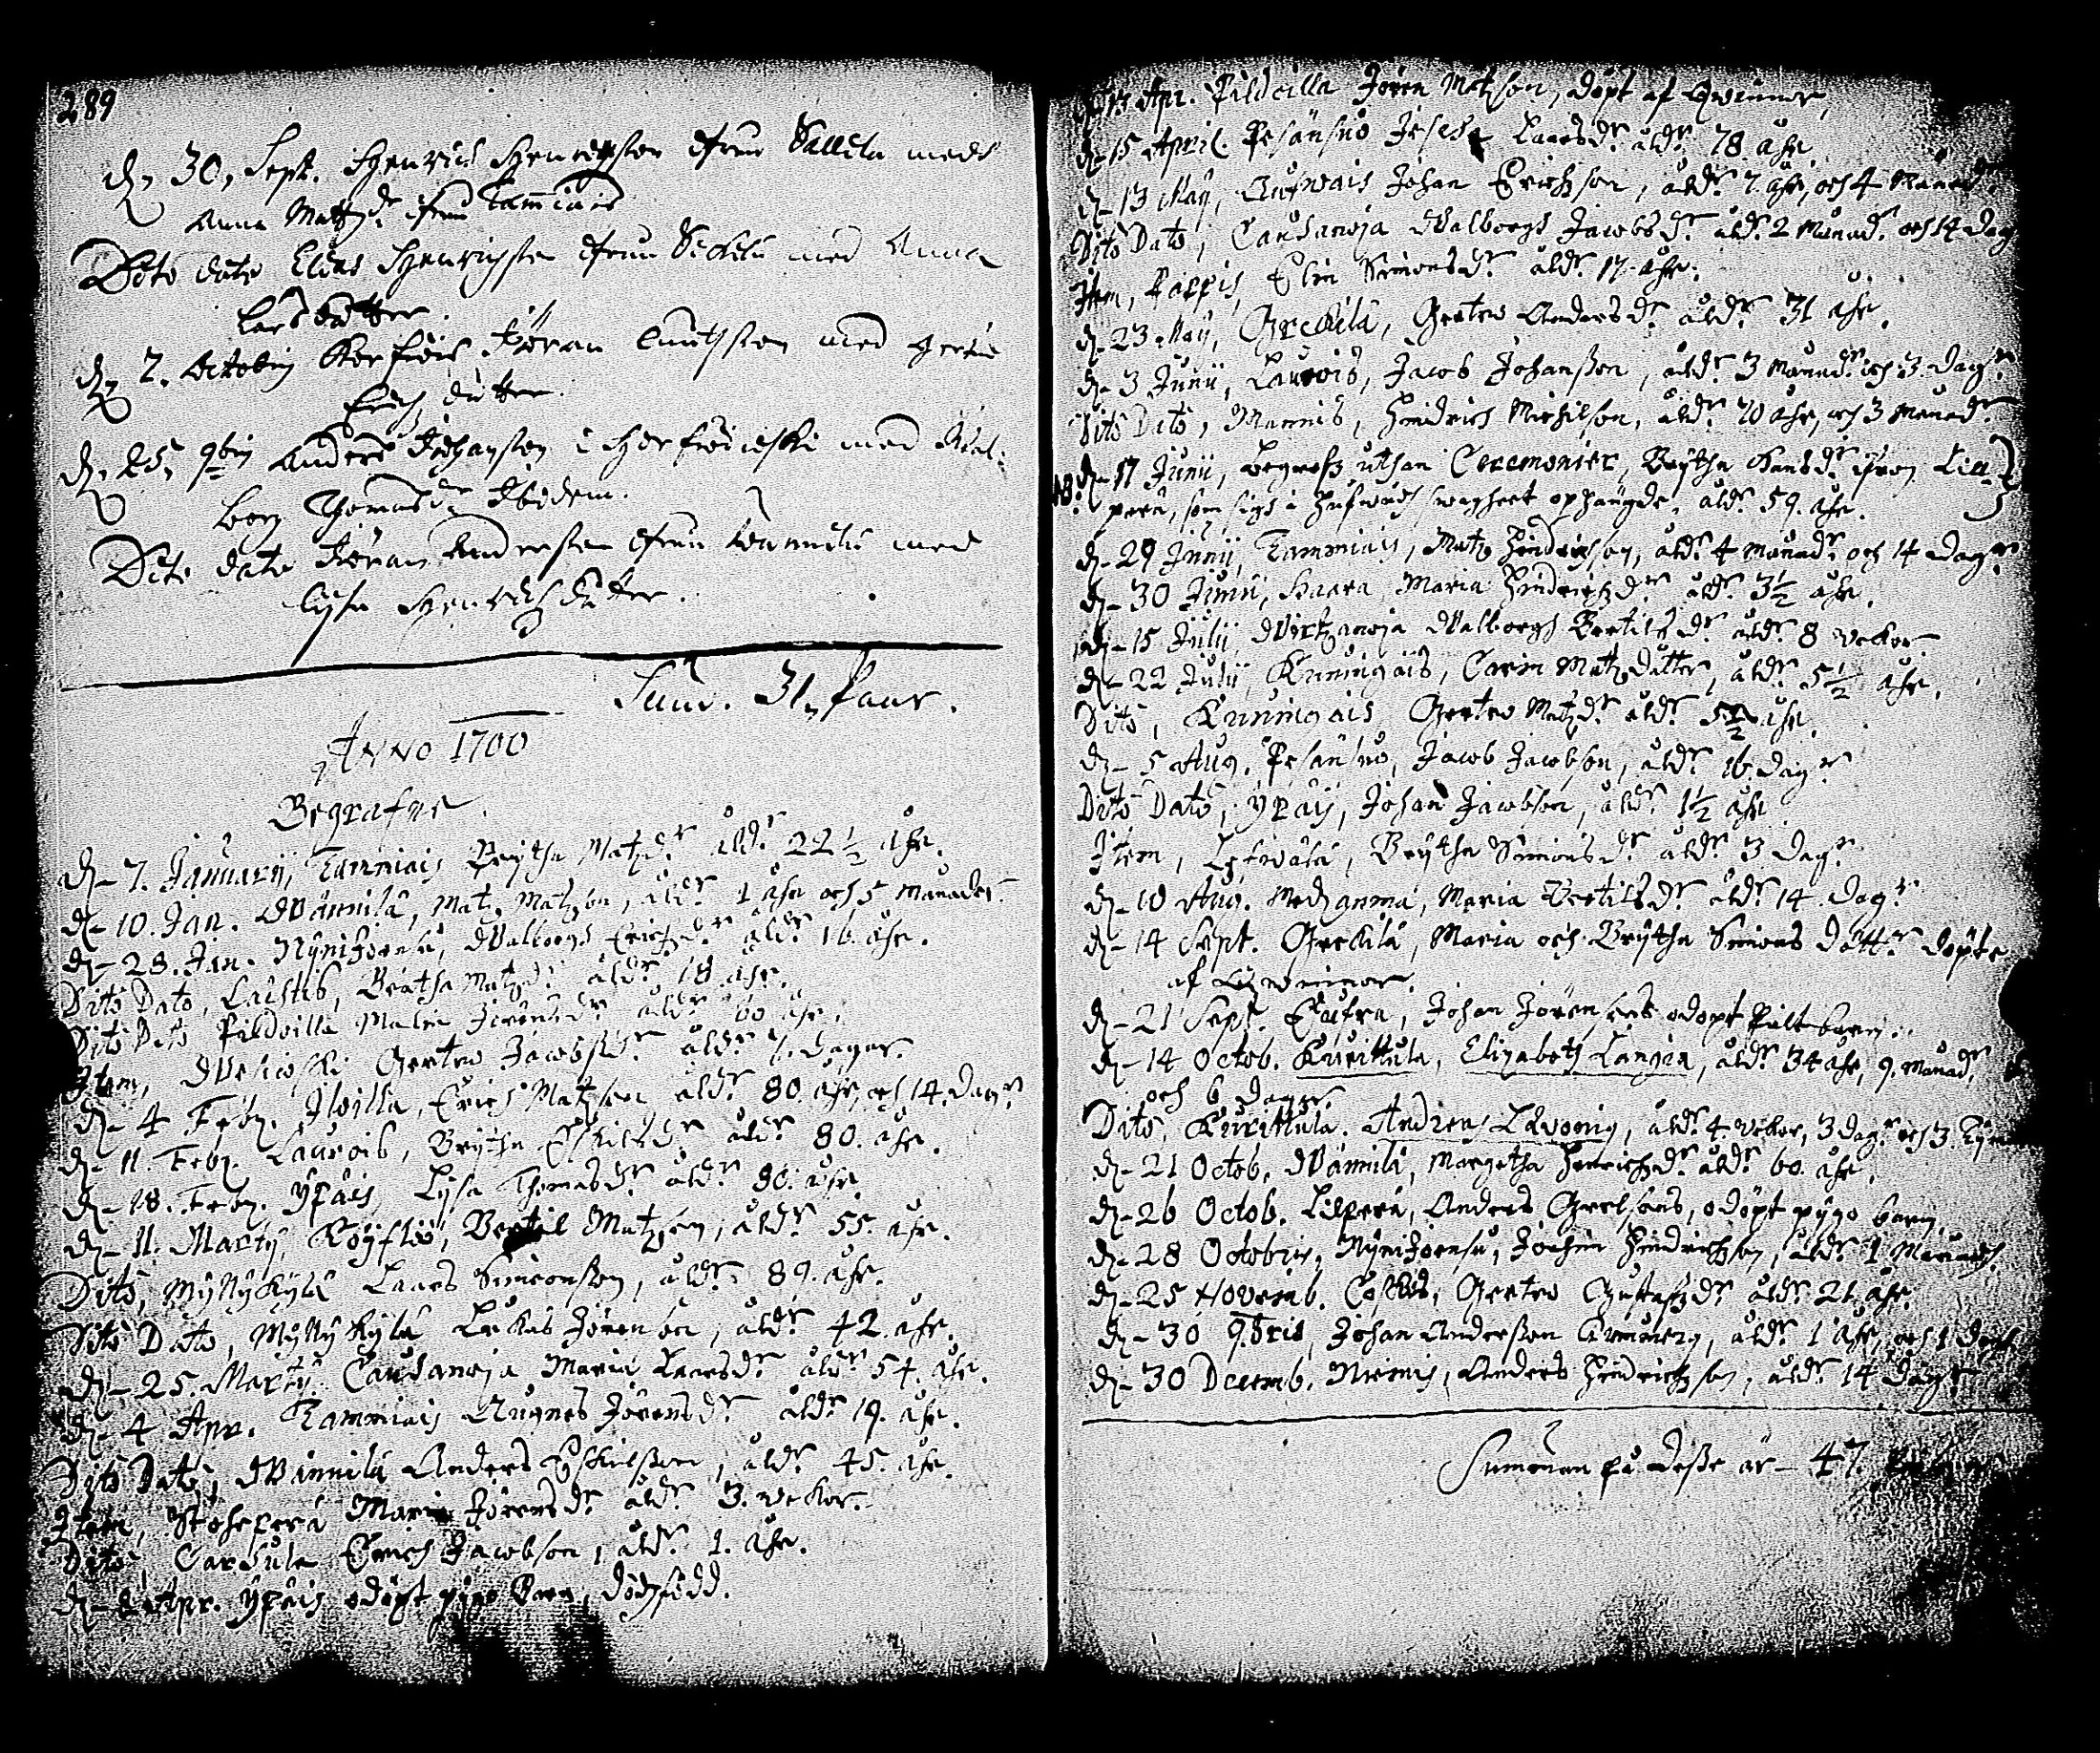 289
dn 30, Sept. Henrich Henrichson ifrån Sallila med
Anna Matzdr ifrån Tammiais
Dito dato Elias Henrichson ifrån med Anna
Larsdåtter.
dn 7. Octobris Jöran Knutsson med
Erichz dåtter.
dn 25, 9bris Anders Johansson i med Wal-
borg Thomasdr Ibidem.
Dito dato Jöran Andersson ifrån Wannila med
Lijsa Henrichsdåtter.
Sum. 31, Paar.
ANNO 1700
Begrafne.
dn 7. Januarij, Tammiais Brijtha Matzdr åldr 22 1/2 åhr.
dn 10. Jan. Wännilä, Matz Matzson, åldr 1 åhr och 5 månader.
dn 28. Jan. Nijnijoensu, Walborgh Erichzdr åldr 16. åhr.
Dito Dato, Laihtis, Beatha Matzdr åldr 18 åhr.
Dito Dato Pildvilla Malin Jörensdr åldr 60 åhr.
Item, Gertru Jacobsdr åldr dagar.
dn 4 Febr. Ilvilla, Erich Matzson åldr 80. åhr, och 14. dagr
dn 11. Febr. Laurois, Brijtha Eskilsdr åldr 80. åhr.
dn 18. Febr. Ypäis, Lijsa Thomasdr åldr 80. åhr.
dn 11. Martij, Köyliö, Bertil Matzson, åldr 55. åhr.
Dito, Myllykylä Laars Simonsson, åldr 89. åhr.
Dito Dato, Myllykylä Lukas Jörenson, åldr 42. åhr.
dn 25. Martij. Caukanoja Maria Laarsdr åldr 54. åhr.
dn 4 Apr. Tammiais Augnes Jörensdr åldr 19. åhr.
Dito Dato, Wännilä Anders Eskilsson, åldr 45. åhr.
Item, Stohrperä Maria Jörensdr åldr 3. veckor.
Dito, Carhula Erich Jacobson, åldr 1. åhr.
dn Apr. Ypäis odöpt pigo Barn, dödfödd.
Apr. Pildvilla Jören Matzson, döpt af Qwinnor,
dn 15 April. Pesänsuo Laarsdr åldr 78. åhr.
dn 13 Maij, Johan Erichzson, åldr 7. åhr, och 4 Månadr
Dito Dato, Caukanoja Walborgh Jacobsdr åldr 2 Månadr och 14 Dag
Item, Pappis, Elin Simonsdr åldr 17. åhr.
dn 23 Maij, Greckilä, Gertru Andersdr åldr 31 åhr.
dn 3 Junij, Laurois, Jacob Johansson, åldr 3 Månadr och 3. Dagr
Dito Dato, Mannis, Hindrich Michilson, åldr 70 åhr, och 3 Månadr
NB. dn 17 Junij, begrofz uthan Ceremonier, Brijtha Hansdr ifron Lill-
perä, som sigh i swagheet ophängde, åldr 59. åhr.
dn 29 Junij, Tammiais, Matz Hindrichson, åldr 4 Månadr och 14 Dagr
dn 30 Junij, Haara Maria Hindrichzdr åldr 3 1/2 åhr.
dn 15 Julij, Wirtzanoja Walborgh Bertilsdr åldr 8 veckor.
dn 22 Julij, Kuningais, Carin Matzdåtter, åldr 5 1/2 åhr.
Dito, Kuningais Gertru Matzdr åldr åhr.
dn 5 Aug. Pesänsuo, Jacob Jacobson, åldr 16 dagr
Dito Dato, Ypäis, Johan Jacobson, åldr 1 1/2 åhr
Item, Brijtha Simonsdr åldr 3 dagr
dn 10 Aug. Maria Bertilsdr åldr 14. Dagr
dn 14 Sept. Greckilä, Maria och Brijtha Simons dåttr döpte
af Qwinnor.
dn 21 Sept. Johan Jörensons odöpt Pilt barn.
dn 14 Octob. Kurittula, Elizabeth Langia, åldr 34 åhr, 9. månadr
och 6 dagar.
Dito, Kurittula. Andreas Levonig, åldr 4. veckor, 3 dagr och 3.
dn 21 Octob. Wännilä, Margetha Henrichzdr åldr 60. åhr.
dn 26 Octob. Lillperä, Anders Grelsons, odöpt pigo barn.
dn 28 Octobris, Nijnijoensu, Jochim Hindrichson, åldr 1 Månadh.
dn 25 Novemb. Gertru Gustafzdr åldr 21 åhr.
dn 30 9.bris, Johan Andersson åldr 1 åhr, och 1
dn 30 Decemb. Niemis, Anders Hindrichson, åldr 14 dagr
Summan på desse är - 47.